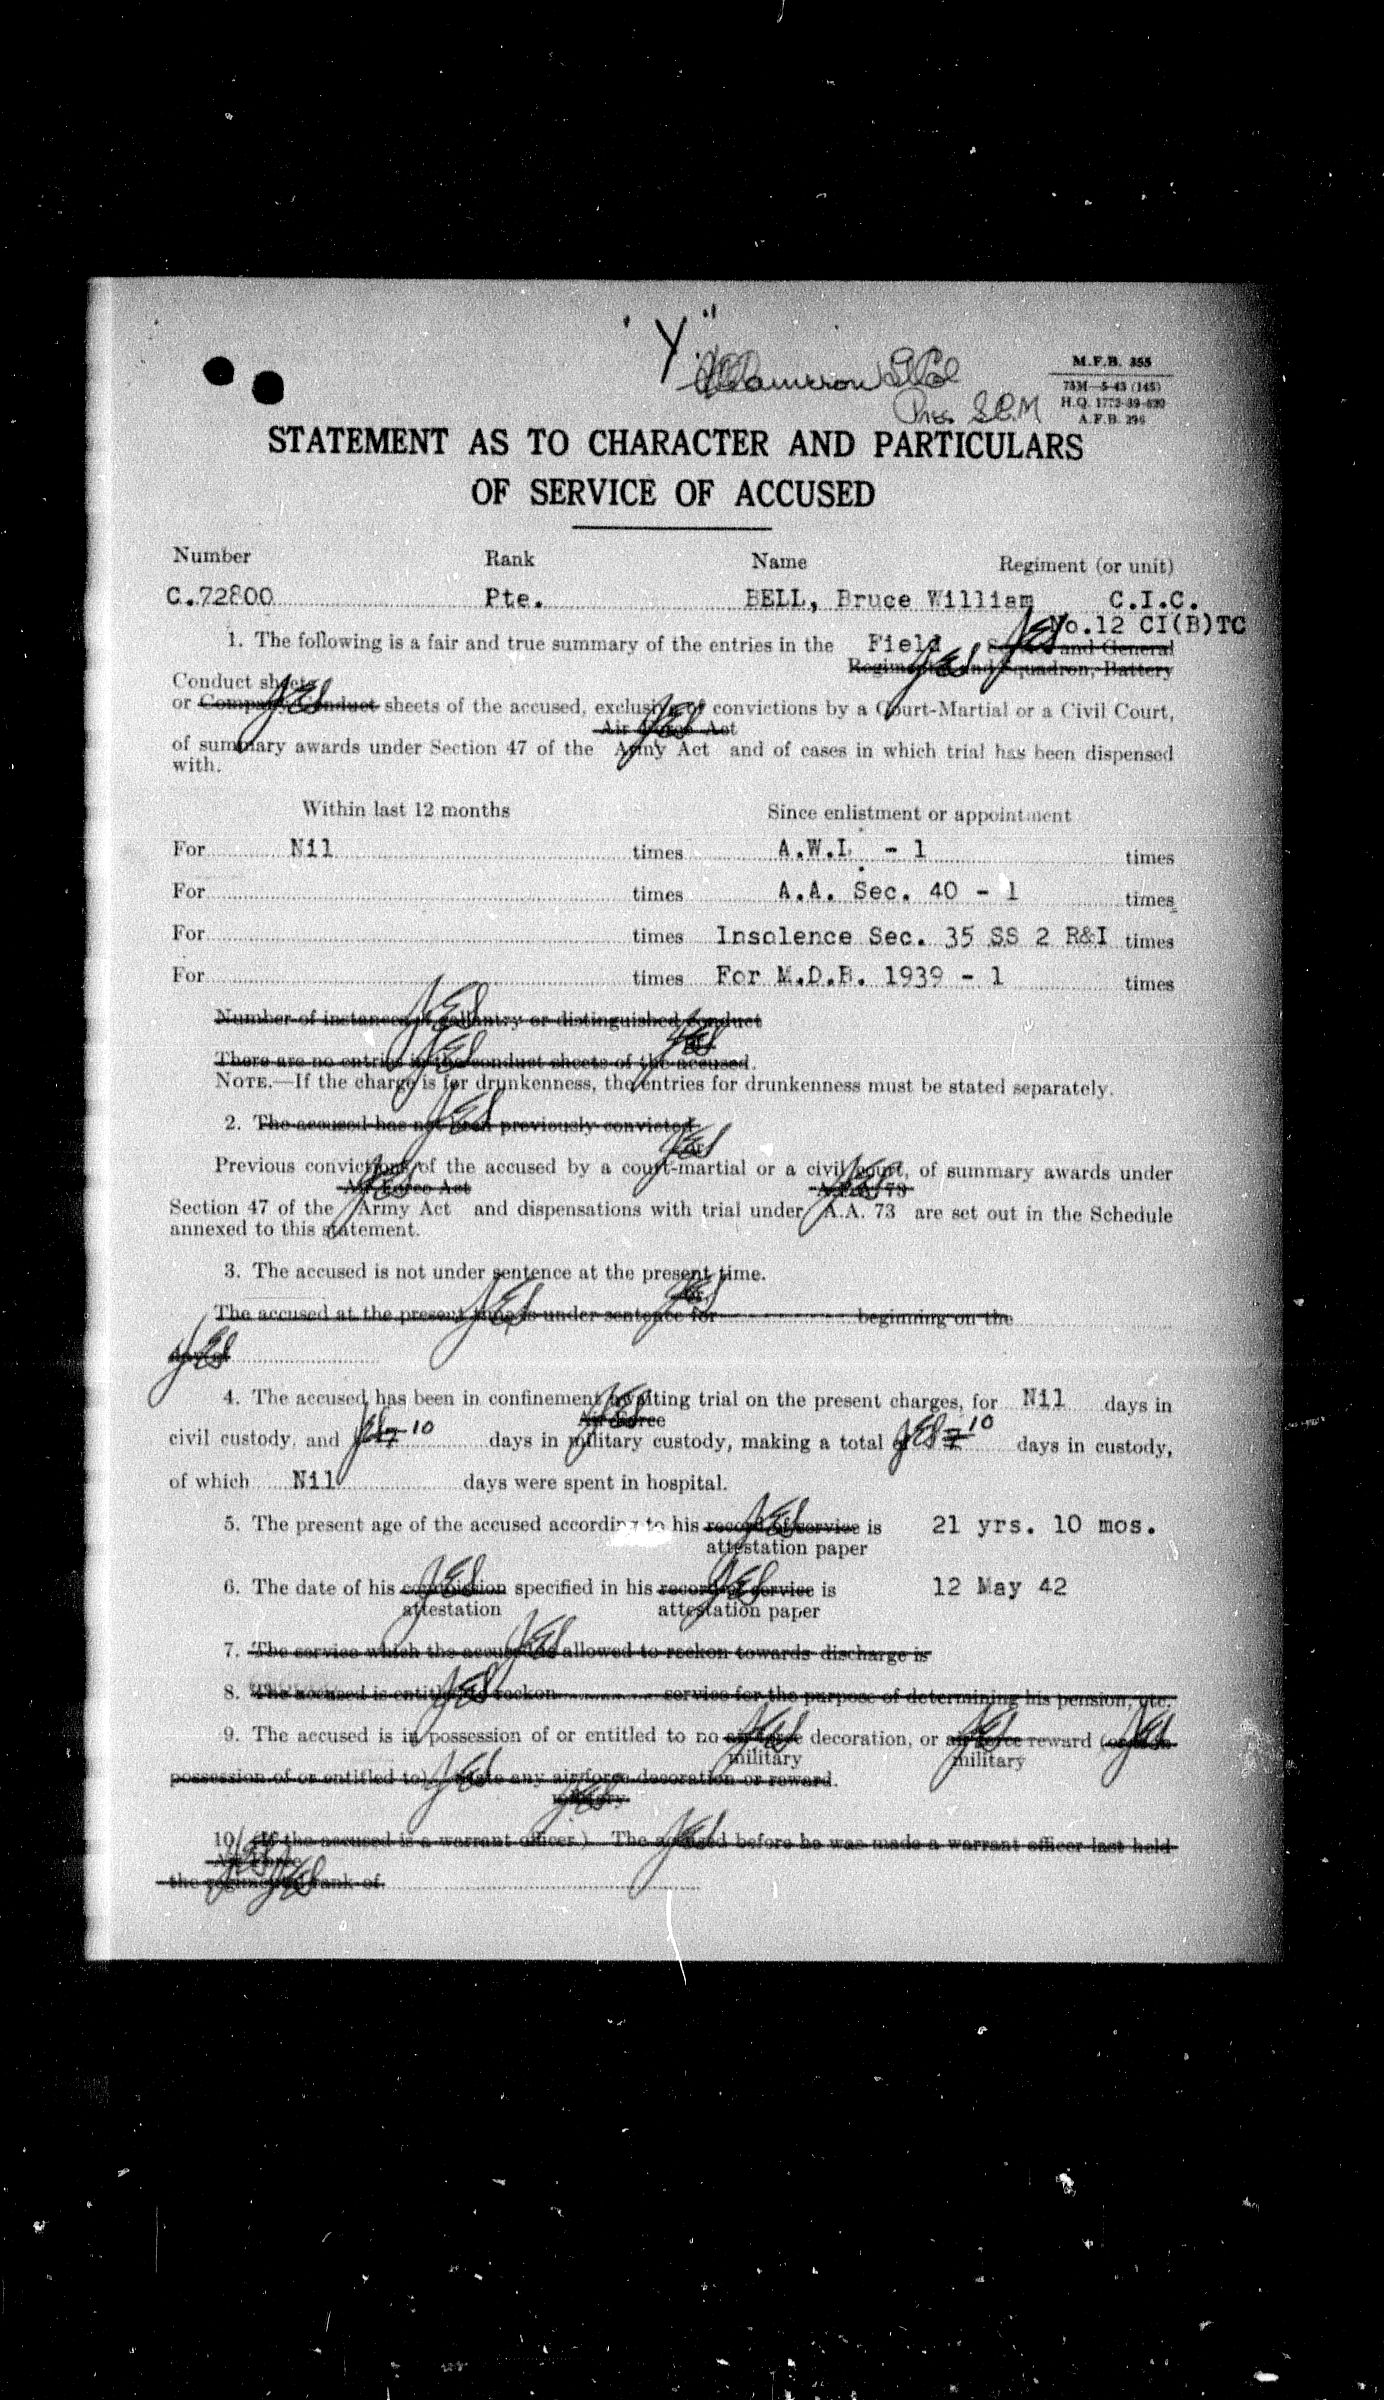 "Y"
Cameron
Pres. G.C.M
M.F.B. 355
75M-5-43 (145)
H.Q. 1772-39-630
A.F.B. 296
STATEMENT AS TO CHARACTER AND PARTICULARS
OF SERVICE OF ACCUSED
Number Rank Name Regiment (or unit)
C.72800 Pte. BELL, Bruce William C.I.C.
No.12 CI(B)TC
1. The following is a fair and true summary of the entries in the Field and General
Squadron, Battery
Conduct sheets
or Company Conduct sheets of the accused, exclusive of convictions by a Court-Martial or a Civil Court,
Air Force Act
of summary awards under Section 47 of the Army Act and of cases in which trial has been dispensed
with.
Within last 12 months Since enlistment or appointment
For Nil times A.W.L. - 1 times
For times A.A. Sec. 40 - 1 times
For times Insolence Sec. 35 SS 2 R&I times
For times For M.D.B. 1939 - 1 times
Number of instances of gallantry or distinguished conduct
There are no entries in the conduct sheets of the accused.
NOTE.—If the charge is for drunkenness, the entries for drunkenness must be stated separately.
2. The accused has not been previously convicted.
Previous convictions of the accused by a court-martial or a civil court, of summary awards under
Air Force Act
Section 47 of the Army Act and dispensations with trial under A.A. 73 are set out in the Schedule
annexed to this statement.
3. The accused is not under sentence at the present time.
The accused at the present time is under sentence for beginning on the
4. The accused has been in confinement awaiting trial on the present charges, for Nil days in
Air Force
civil custody, and 7 10 days in military custody, making a total of 7 10 days in custody,
of which Nil days were spent in hospital.
5. The present age of the accused according to his record of service is 21 yrs. 10 mos.
attestation paper
6. The date of his commission specified in his record of service is 12 May 42
attestation attestation paper
7. The service which the accused is allowed to reckon towards discharge is
8. The accused is entitled to reckon service for the purpose of determining his pension, etc.
9. The accused is in possession of or entitled to no air force decoration, or air force reward (or is in
military military
possession of or entitled to) state any air force decoration or reward.
military
10. (If the accused is a warrant officer.) The accused before he was made a warrant officer last held
Air Force
the regimental rank of